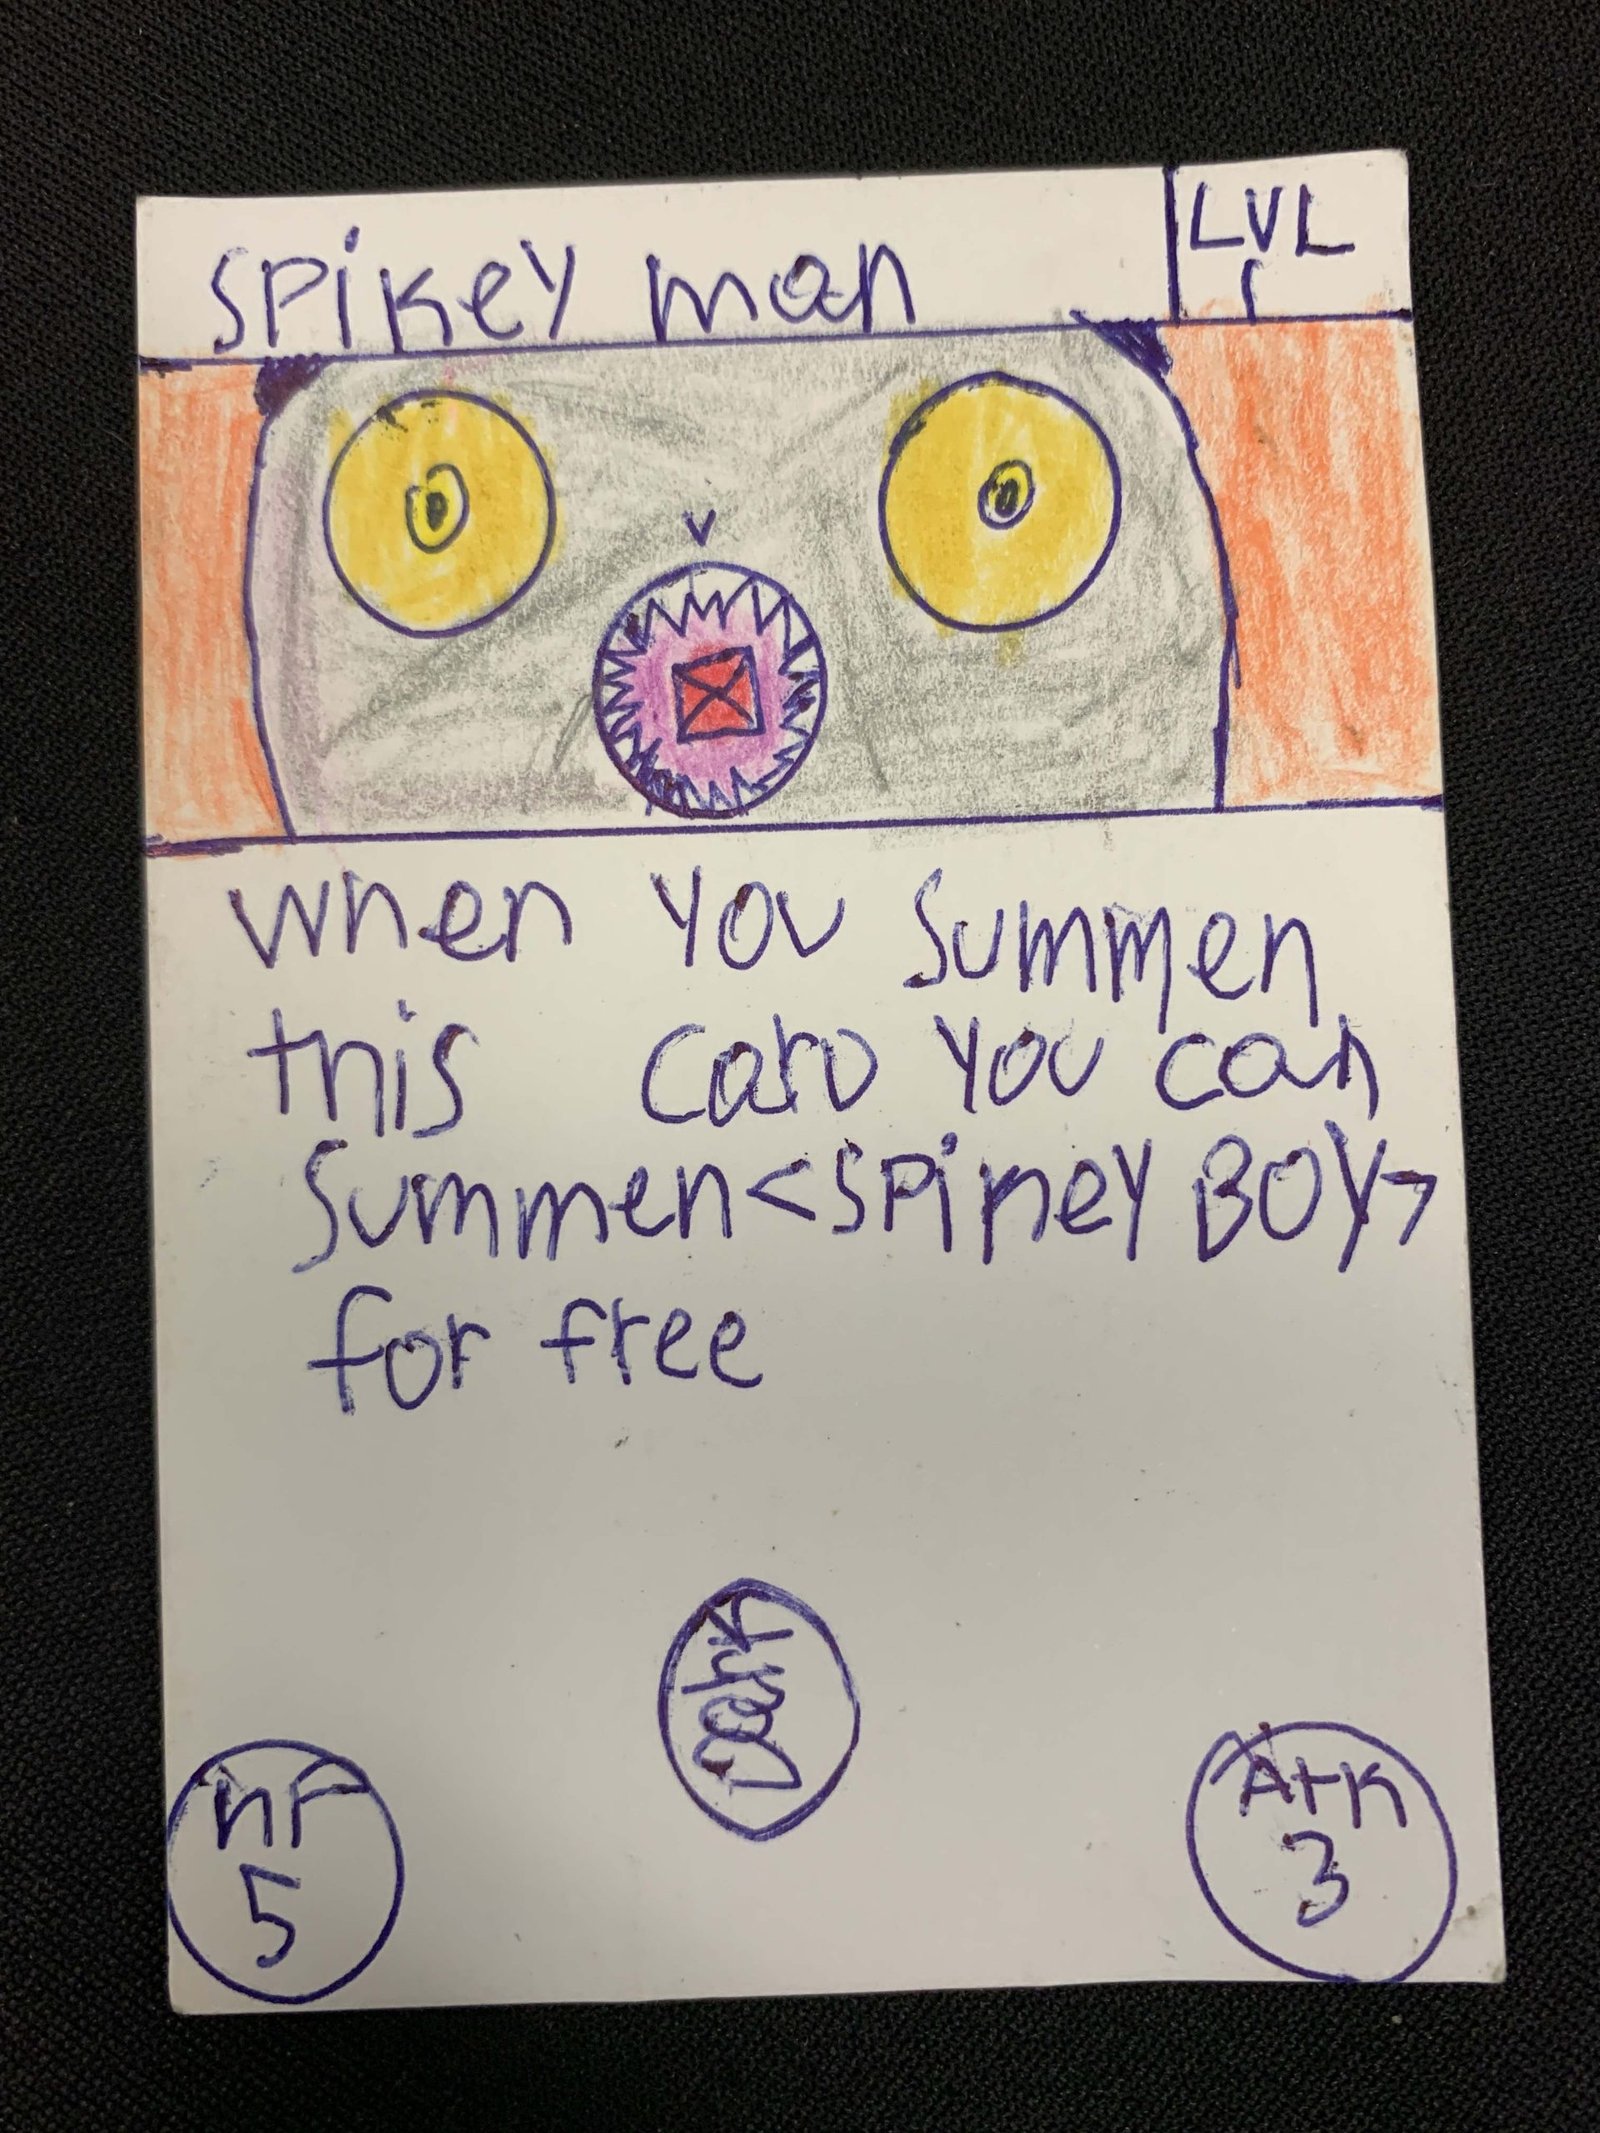 SPiKey man
LVL
1
when you summen
this card you can
summen <SPikey BOY>
for free
Dark
HP
5
Atk
3